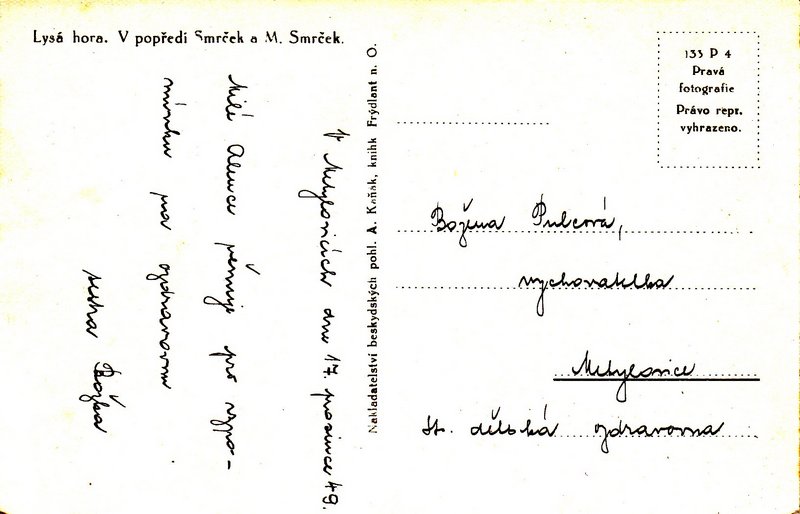 Lysá hora. V popředí Smrček a M. Smrček.
V Metylovicích dne 17. prosince 49.
Milé Alence věnuje pro vzpo-
mínku na ozdravovnu
sestra Božka
Nakladatelství beskydských pohl. A. Kaňák, knihk Frýdlant n. O.
133 P 4
Pravá
fotografie
Právo repr.
vyhrazeno.
Božena Pulcová,
vychovatelka
Metylovice
st. dětská ozdravovna